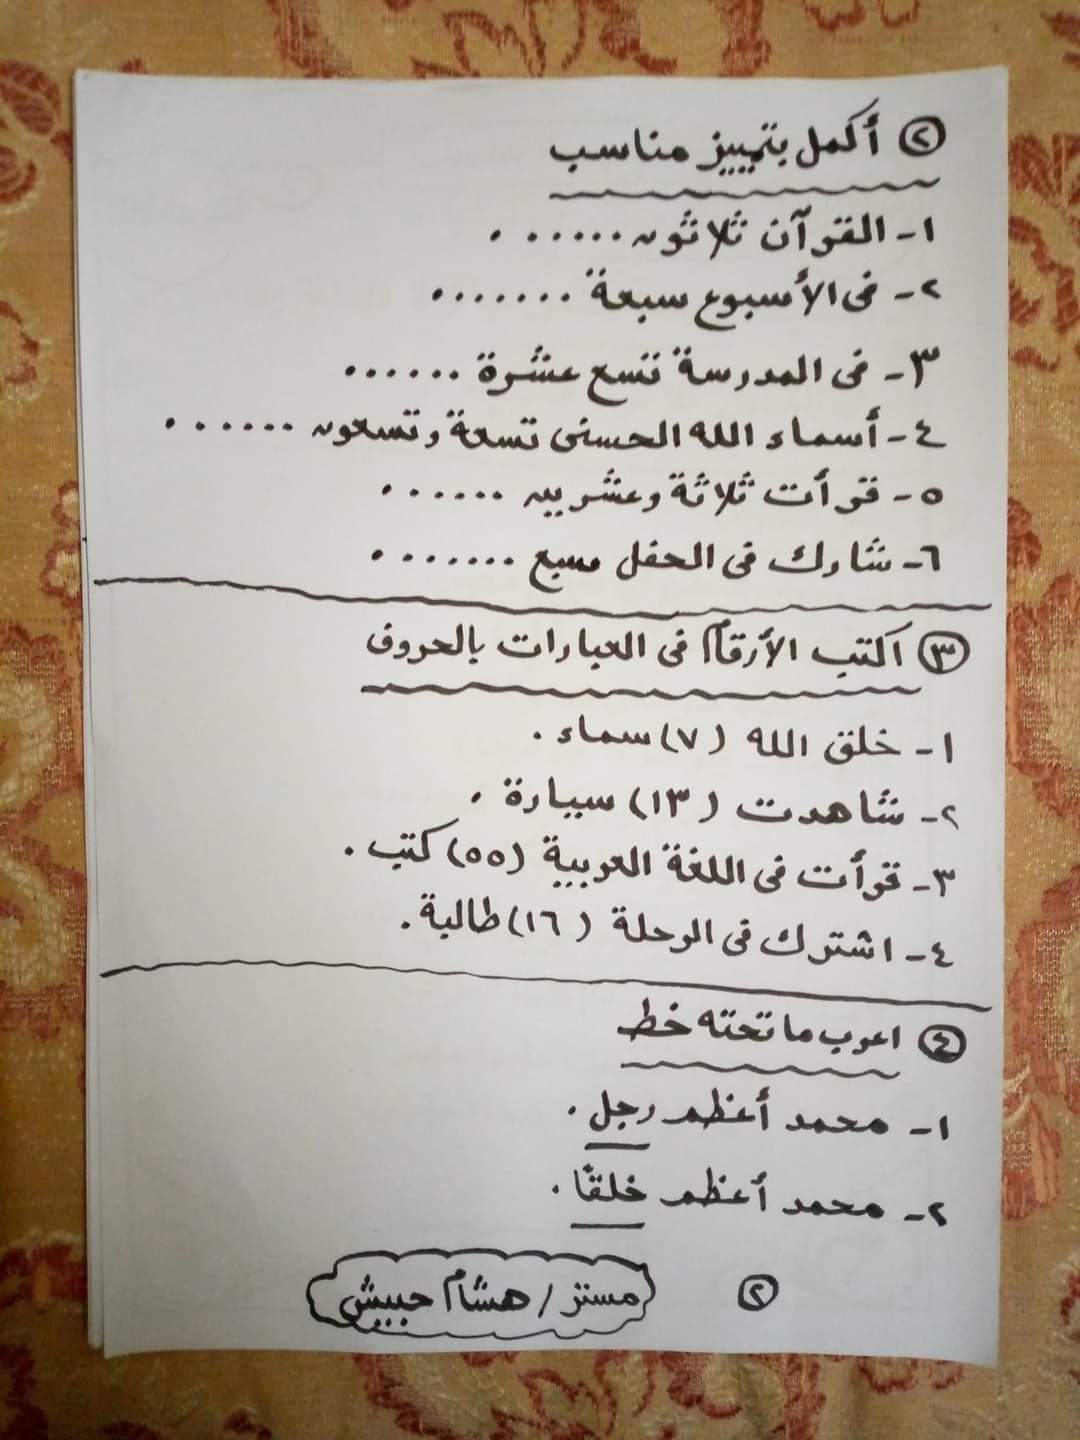 ٢ أكمل بتمييز مناسب
١- القرآن ثلاثون ...... .
٢- في الأسبوع سبعة ....... .
٣- في المدرسة تسع عشرة ...... .
٤- أسماء الله الحسنى تسعة وتسعون ...... .
٥- قرأت ثلاثة وعشرين ...... .
٦- شارك في الحفل سبع ....... .
٣ اكتب الأرقام في العبارات بالحروف
١- خلق الله (٧) سماء .
٢- شاهدت (١٣) سيارة .
٣- قرأت في اللغة العربية (٥٥) كتب .
٤- اشترك في الرحلة (١٦) طالبة .
٤ اعرب ما تحته خط
١- محمد أعظم رجل .
٢- محمد أعظم خلقًا .
٢ مستر / هشام حبيش